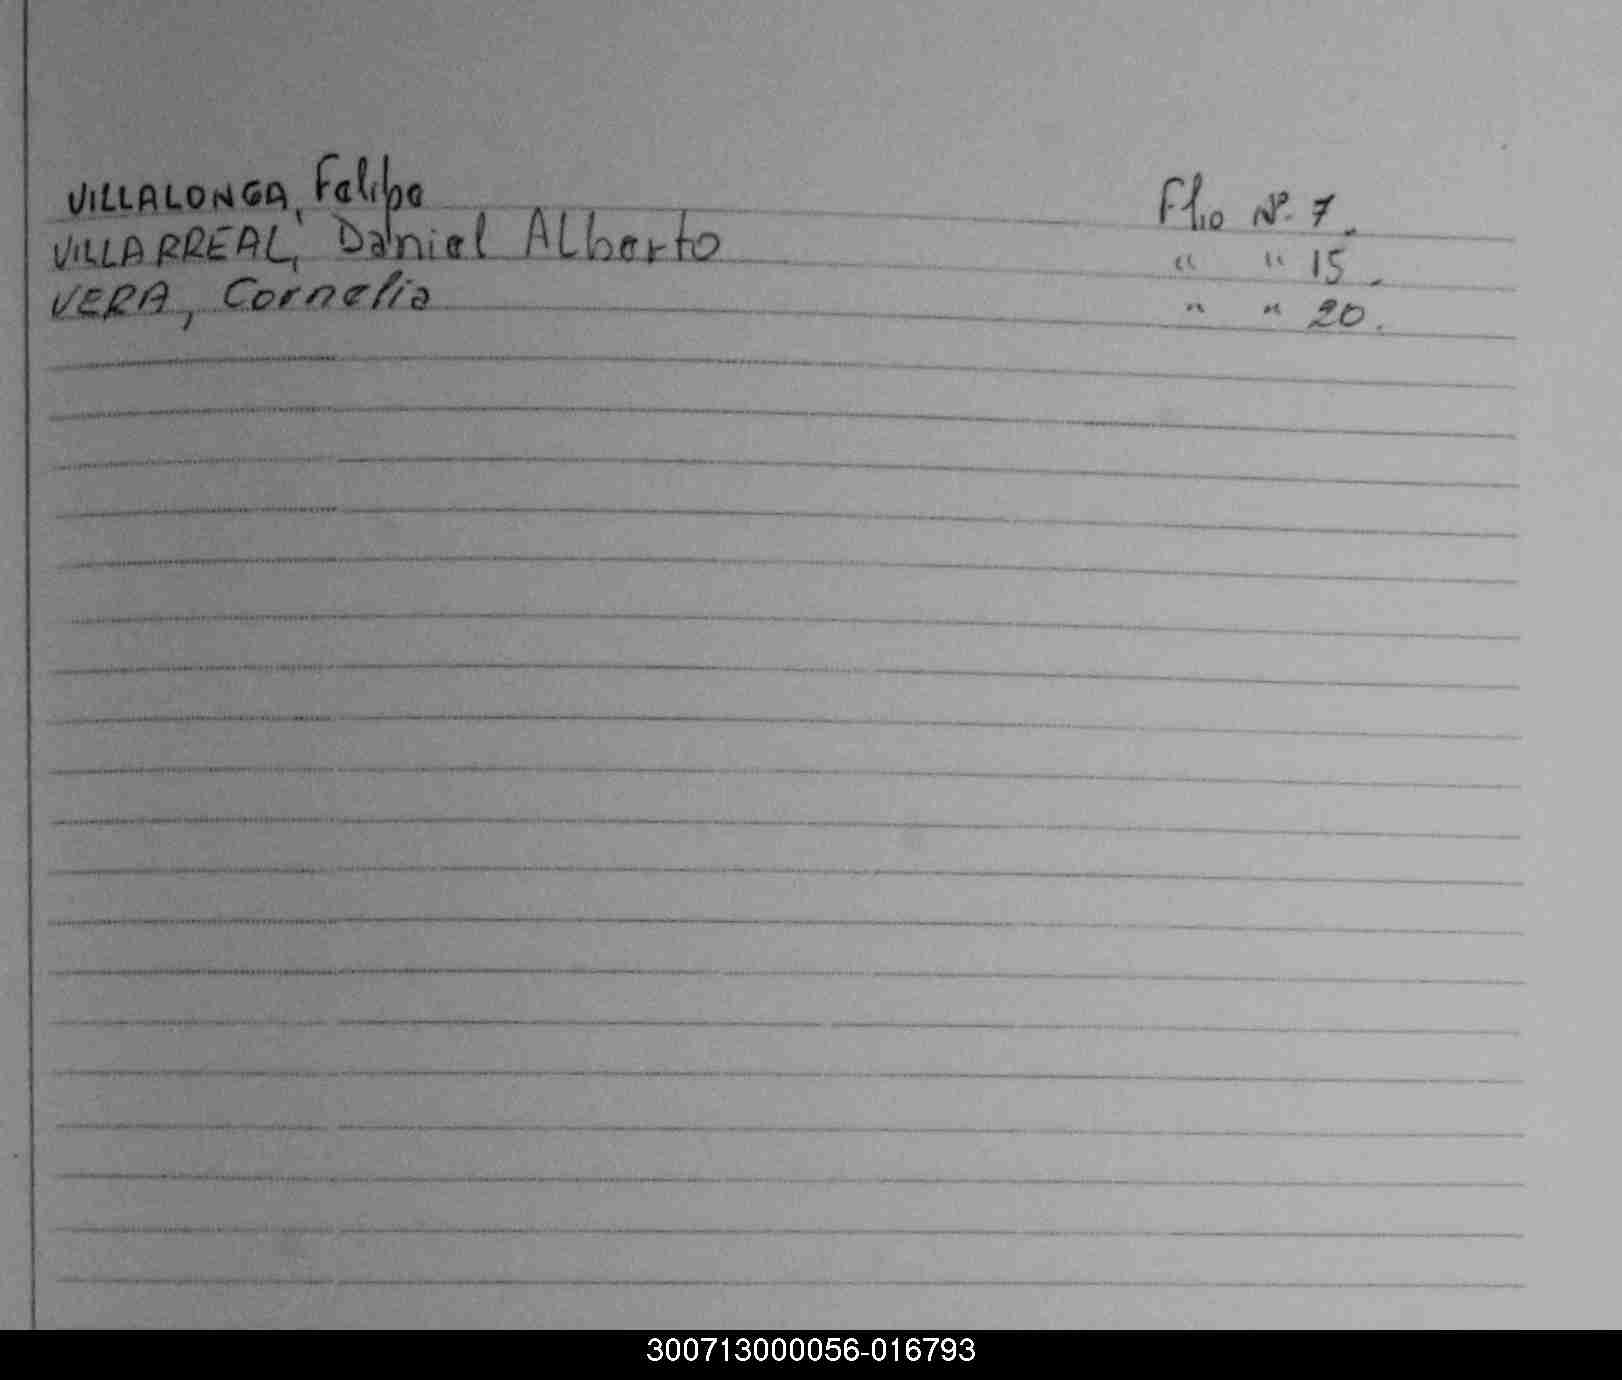 VILLALONGA, Felipe Flio Nº. 7.
VILLARREAL, Daniel Alberto " " 15.
VERA, Cornelia " " 20.
300713000056-016793